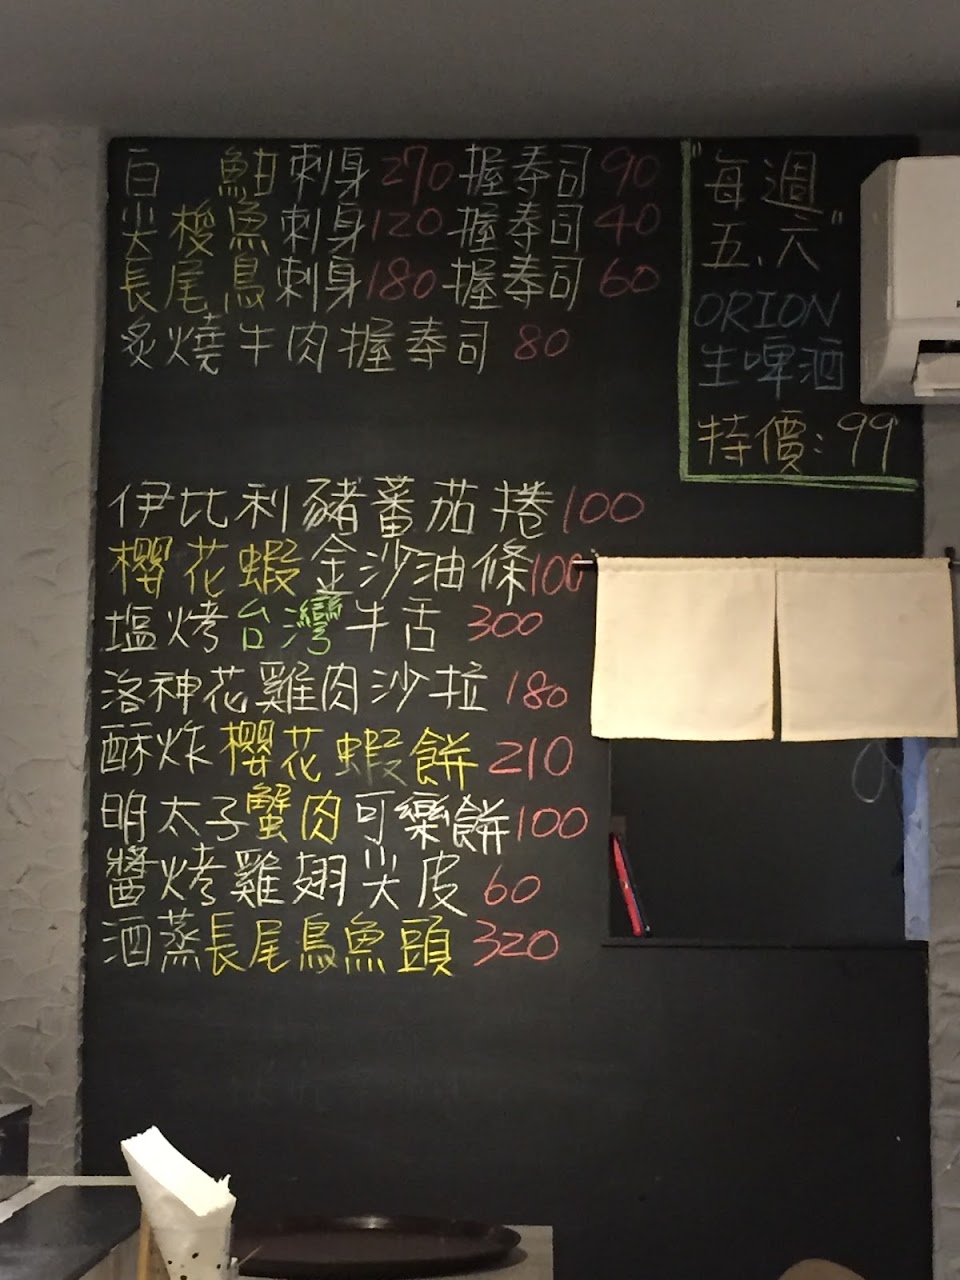 白 魽刺身270握壽司90
尖梭魚刺身120握壽司40
長尾鳥刺身180握壽司60
炙燒牛肉握壽司 80
"每週
五.六"
ORION
生啤酒
特價:99
伊比利豬蕃茄捲100
櫻花蝦金沙油條100
塩烤台灣牛舌 300
洛神花雞肉沙拉 180
酥炸櫻花蝦餅 210
明太子蟹肉可樂餅100
醬烤雞翅尖皮 60
酒蒸長尾鳥魚頭 320